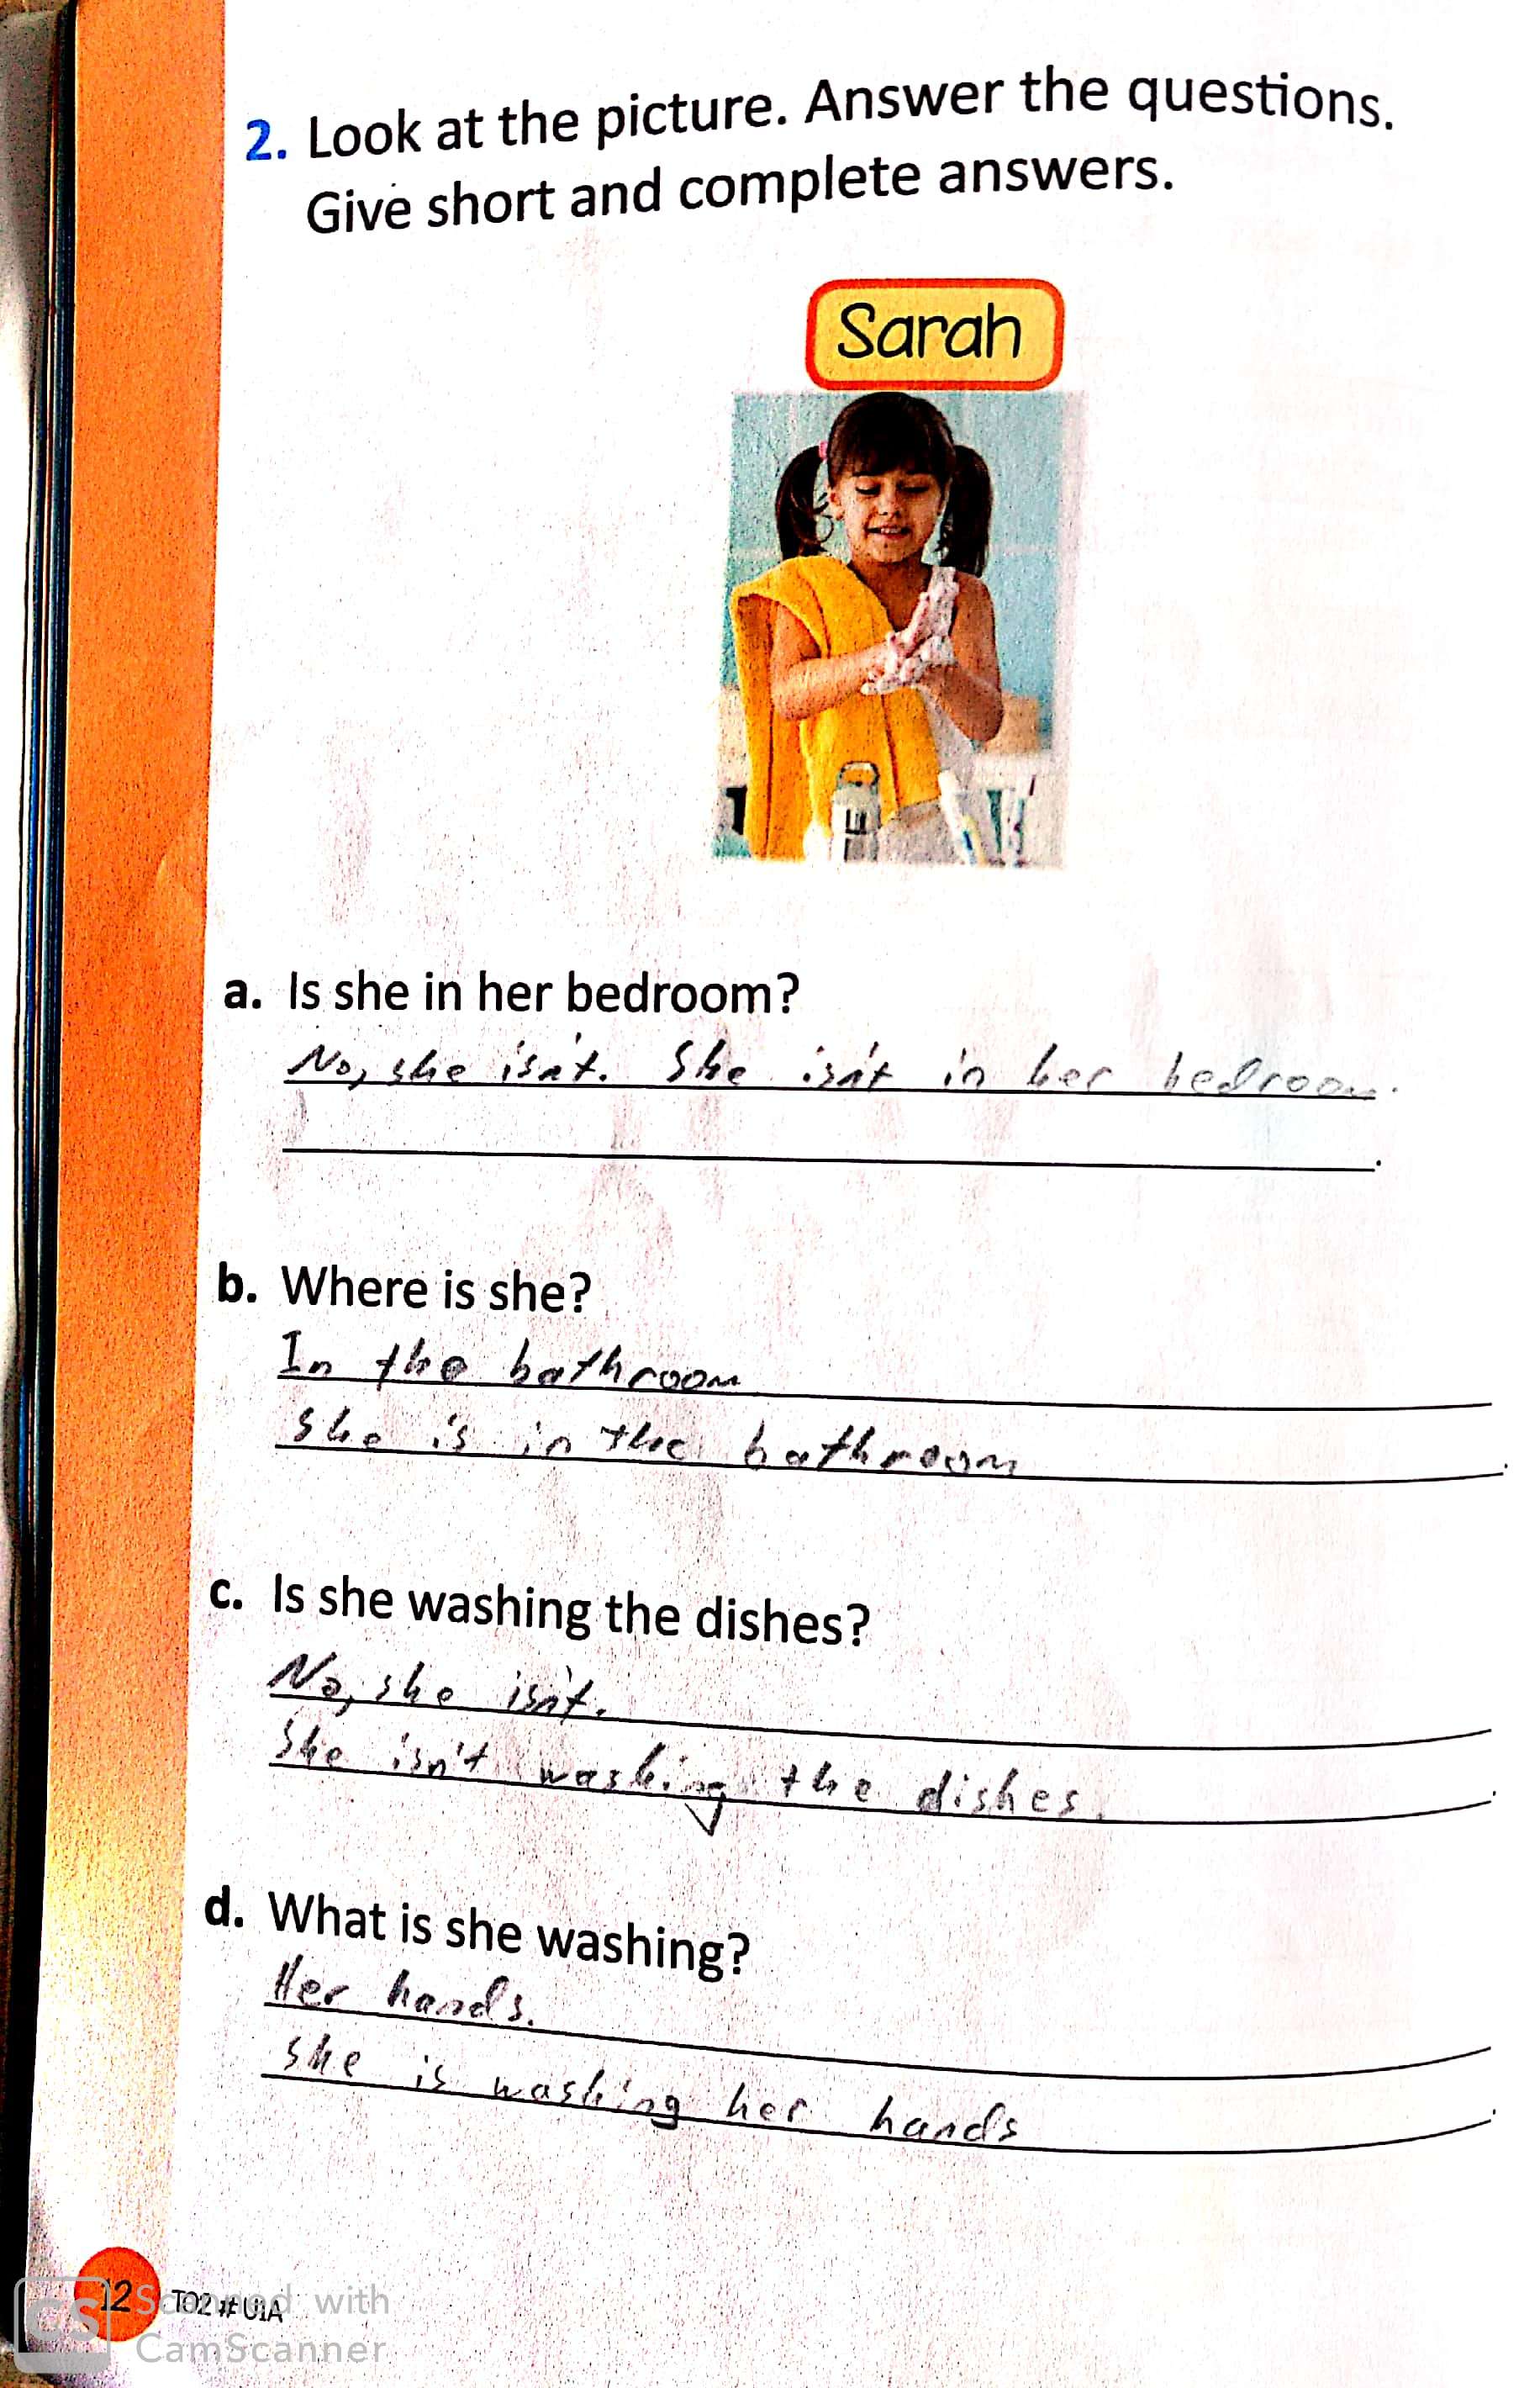 2. Look at the picture. Answer the questions.
Give short and complete answers.
Sarah
a. Is she in her bedroom?
No, she isn't. She isn't in her bedroom.
b. Where is she?
In the bathroom
She is in the bathroom.
c. Is she washing the dishes?
No, she isn't.
She isn't washing the dishes.
d. What is she washing?
Her hands.
She is washing her hands.
12 TO2 # U1A
CS Scanned with
CamScanner